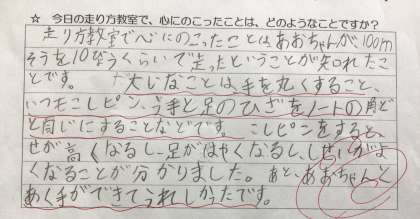 ☆ 今日の走り方教室で、心にのこったことは、どのようなことですか？
走り方教室で心にのこったことはあおちゃんが、100m
そうを10びょうくらいで走ったということが知れたこ
とです。 大じなことは、手を丸くすること、
いつもこしピン、う手と足のひざをノートの角ど
と同じにすることなどです。こしピンをすると、
せが高くなるし、足がはやくなるし、しせいがよ
くなることが分かりました。あと、あおちゃんと
あく手ができてうれしかったです。